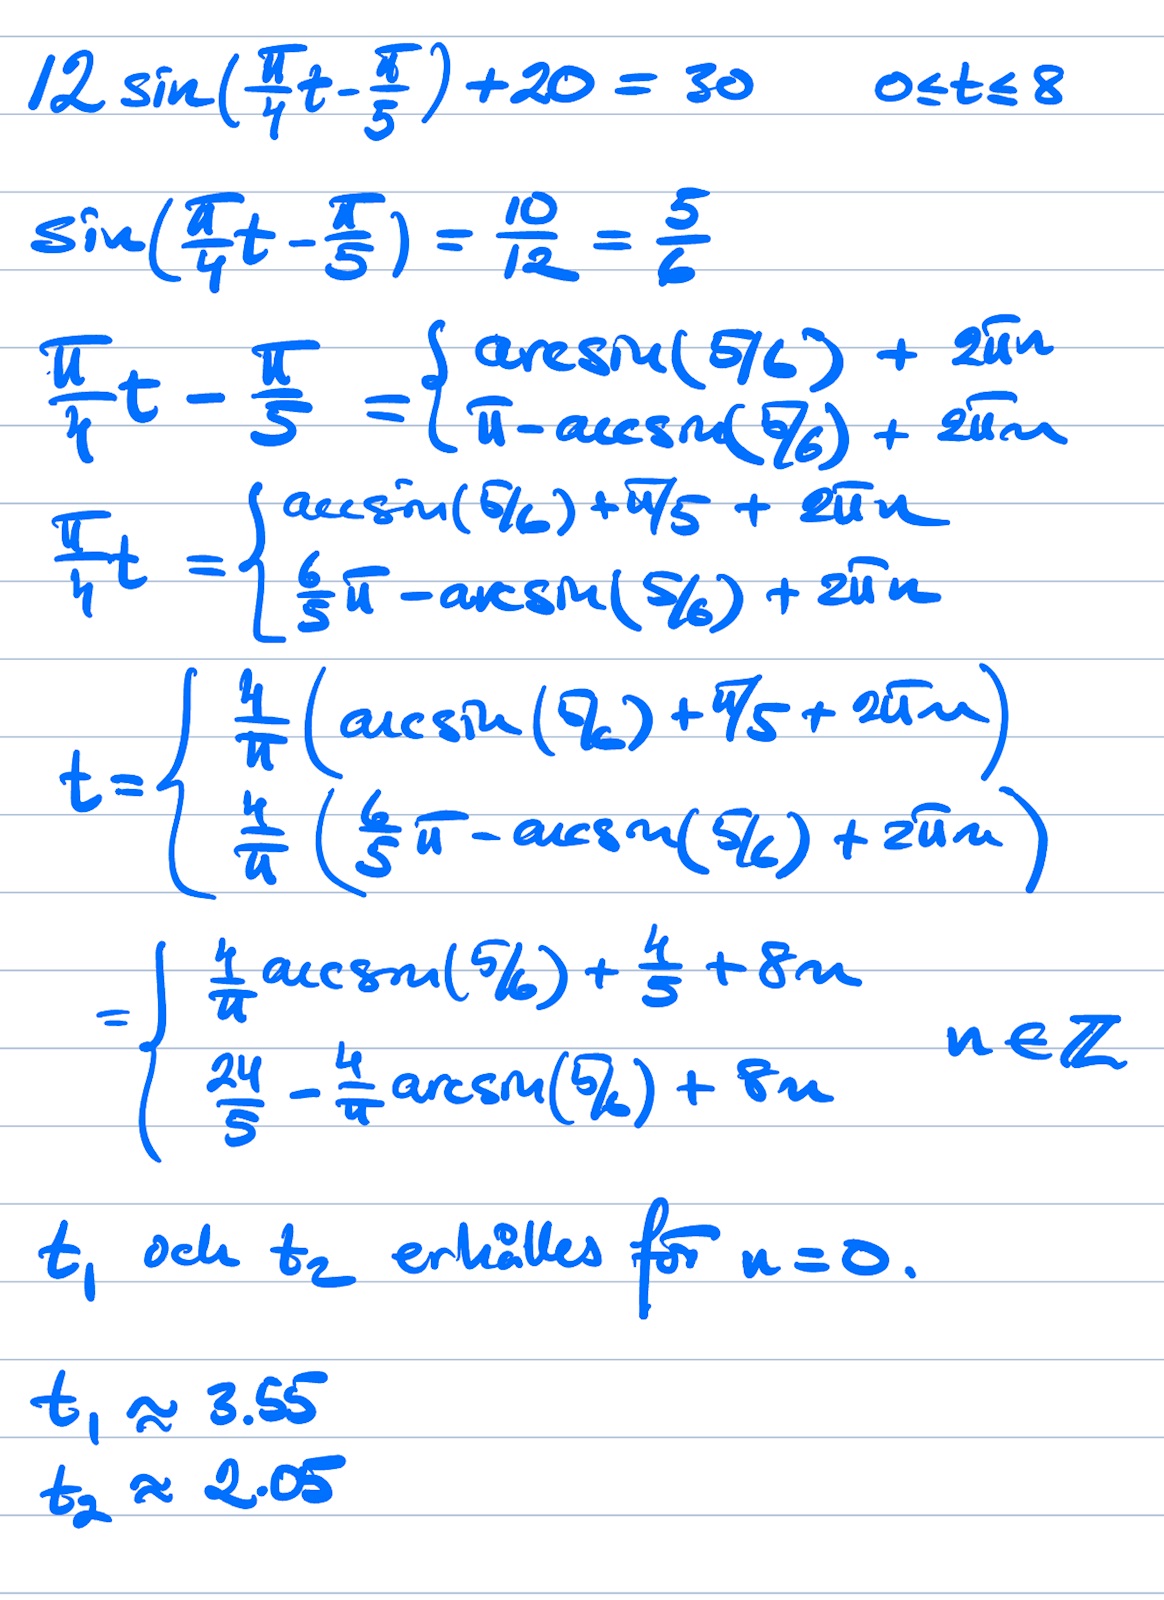 12 sin(π/4 t - π/5) + 20 = 30 0 ≤ t ≤ 8
sin(π/4 t - π/5) = 10/12 = 5/6
π/4 t - π/5 = { arcsin(5/6) + 2πn
π - arcsin(5/6) + 2πn
π/4 t = { arcsin(5/6) + π/5 + 2πn
6/5 π - arcsin(5/6) + 2πn
t = { 4/π (arcsin(5/6) + π/5 + 2πn)
4/π (6/5 π - arcsin(5/6) + 2πn)
= { 4/π arcsin(5/6) + 4/5 + 8n
24/5 - 4/π arcsin(5/6) + 8n n ∈ ℤ
t₁ och t₂ erhålles för n = 0.
t₁ ≈ 3.55
t₂ ≈ 2.05